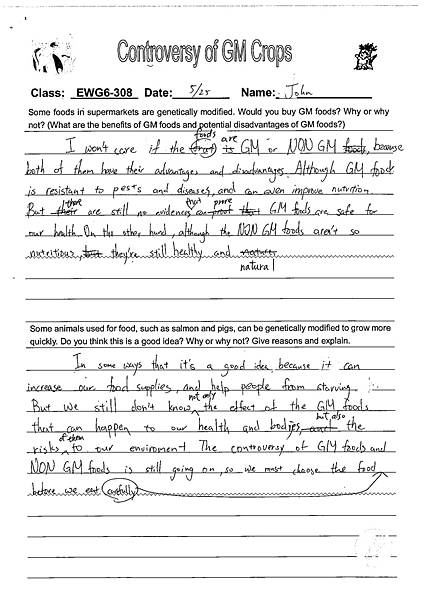 Controversy of GM Crops
Class: EWG6-308 Date: 5/25 Name: John
Some foods in supermarkets are genetically modified. Would you buy GM foods? Why or why
not? (What are the benefits of GM foods and potential disadvantages of GM foods?)
foods are
I won't care if the (fruit) is GM or NON GM foods, because
both of them have their advantages and disadvantages. Although GM foods
is resistant to pests and diseases, and can even improve nutrition.
there that prove
But their are still no evidences can proof that GM foods are safe for
our health. On the other hand, although the NON GM foods aren't so
nutritious, but they're still healthy and nature
natural
Some animals used for food, such as salmon and pigs, can be genetically modified to grow more
quickly. Do you think this is a good idea? Why or why not? Give reasons and explain.
In some ways that it's a good idea because it can
increase our food supplies, and help people from starving.
not only
But we still don't know the effect of the GM foods
but also
that can happen to our health and bodjes, and the
of them
risks to our enviroment. The controversy of GM foods and
NON GM foods is still going on, so we must choose the food
before we eat carefully